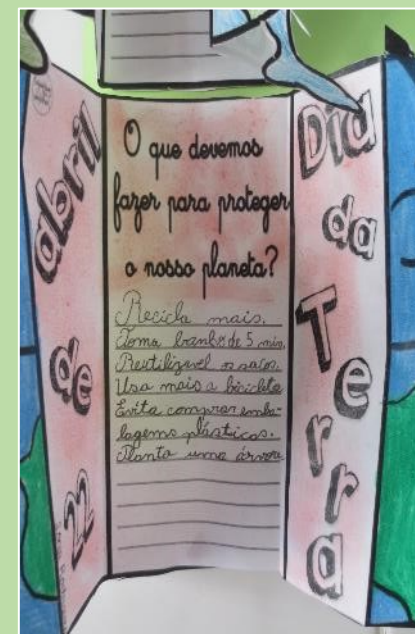 22 de abril
O que devemos
fazer para proteger
o nosso planeta?
Recicla mais.
Toma banhos de 5 min.
Reutilizavel os sacos.
Usa mais a bicicleta
Evita comprar emba-
lagems plásticas.
Planta uma árvore.
Dia
da
Terra